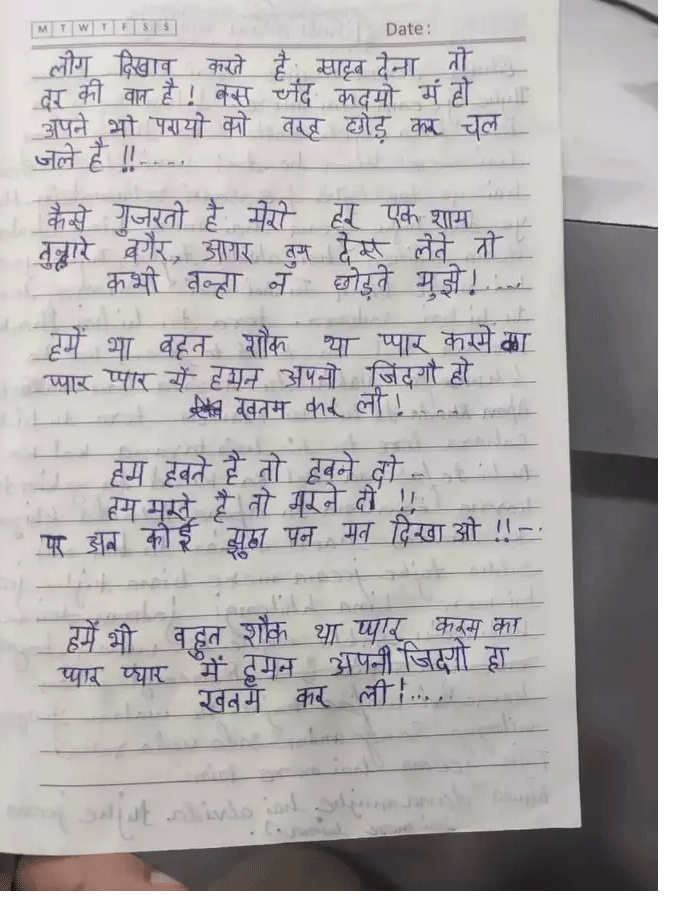 M T W T F S S Date:
लोग दिखाव करते है साहब देना तो
दर की बात है! बस चंद कदमो में हो
अपने भी परायो को तरह छोड़ कर चल
जले है !!-....
कैसे गुजरती है मेरी हर एक शाम
तुम्हारे बगैर, आगर तुम देख लेते तो
कभी तन्हा न छोड़ते मुझे!....
हमें भा बहत शौक था प्यार करमे का
प्यार प्यार में हमन अपनी जिदगी हो
खतम कर ली!
हम डबते है तो डबने दो -
हम मरते है तो मरने दो !!
पर अब कोई झुठा पन मत दिखा ओ !!-.
हमें भी बहुत शौक था प्यार करम का
प्यार प्यार में हमन अपनी जिदगी हा
खतम कर ली!....